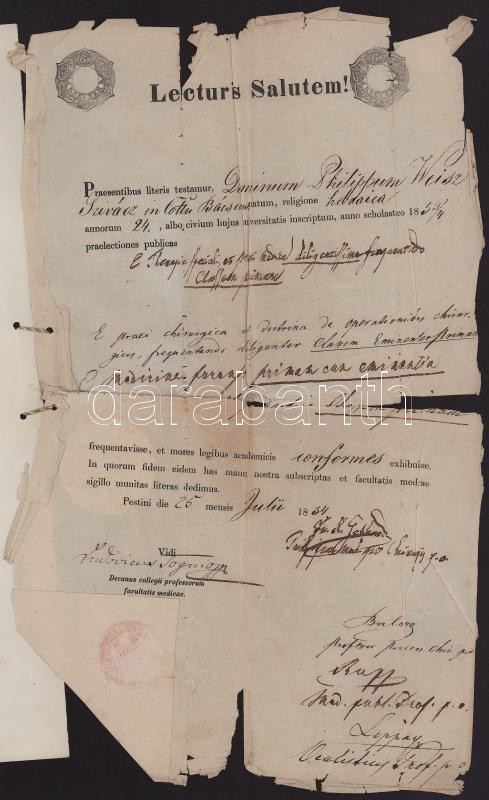 Lecturis Salutem!
Praesentibus literis testamur, Dominum Philippum Weisz
Szivácz in Cottu Bácsien natum, religione hebraica
annorum 24, albo civium hujus universitatis inscriptum, anno scholastico 1853/4
praelectiones publicas
diligentissime frequentando
Classem primam
E praxi chirurgica e doctrina de operationibus chirur-
gicis frequentando diligenter Classem Eminentem primam
E medicina forensi primam cum eminentia
darabanth
frequentavisse, et mores legibus academicis conformes exhibuisse.
In quorum fidem eidem has manu nostra subscriptas et facultatis medicae
sigillo munitas literas dedimus.
Pestini die 25 mensis Julii 1854
Vidi
Ludovicus Tognio
Decanus collegii professorum
facultatis medicae.
Balassa
professor praxeos Chir. p. o
Rupp
Med. publ. Prof. p. o.
Lippay
Oculisticus Prof. p. o